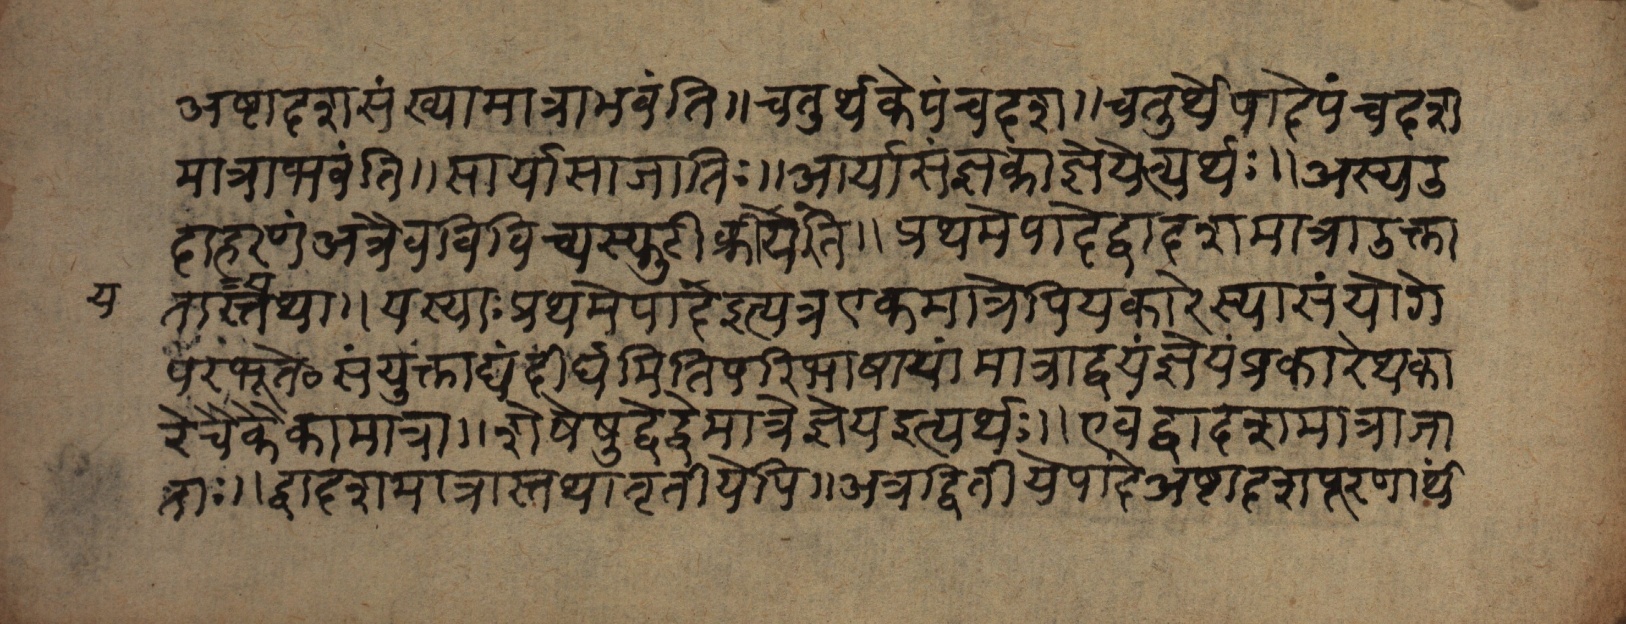 अष्टादशसंख्यामात्राभवंति॥चतुर्थकेपंचदश॥चतुर्थेपादेपंचदश
मात्राभवंति॥सार्यासाजातिः॥आर्यासंज्ञकाज्ञेयेत्यर्थः॥अस्यउ
दाहरणंअत्रैवविविच्यस्फुटीक्रीयेति॥प्रथमेपादेद्वादशमात्राउक्ता
य तास्तथा॥यस्याःप्रथमेपादेइत्यत्रएकमात्रेपियकारेस्यासंयोगे
परंभूते०संयुक्ताद्यंदीर्घमितिपरिभाषायांमात्राद्वयंज्ञेयंप्रकारेथका
रेचैकैकामात्रा॥शेषेषुद्वेद्वेमात्रेज्ञेयइत्यर्थः॥एवद्वादशमात्राजा
ताः॥द्वादशमात्रास्तथातृतीयेपि॥अत्रद्वितीयेपादेअष्टादशपूरणार्थं